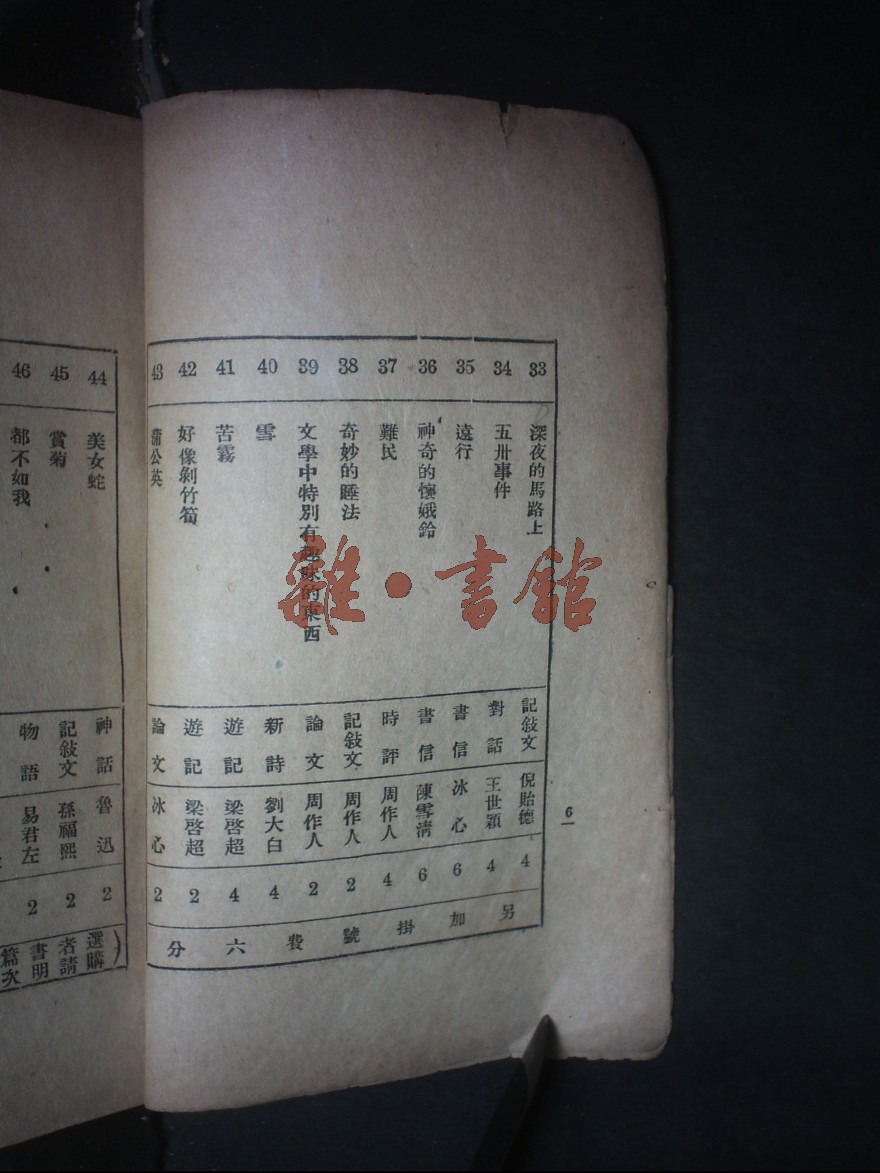 33 深夜的馬路上 記敍文 倪貽德 4
34 五卅事件 對話 王世穎 4
35 遠行 書信 冰心 6
36 神奇的懷娥鈴 書信 陳雪清 6
37 難民 時評 周作人 4
38 奇妙的睡法 記敍文 周作人 2
39 文學中特別有趣味的東西 論文 周作人 2
40 雪 新詩 劉大白 4
41 苦霧 遊記 梁啓超 4
42 好像剝竹筍 遊記 梁啓超 2
43 蒲公英 論文 冰心 2
另加掛號費六分
6
44 美女蛇 神話 魯迅 2
45 賞菊 記敍文 孫福熙 2
46 都不如我 物語 易君左 2
選購
者請
書明
篇次
雜·書館